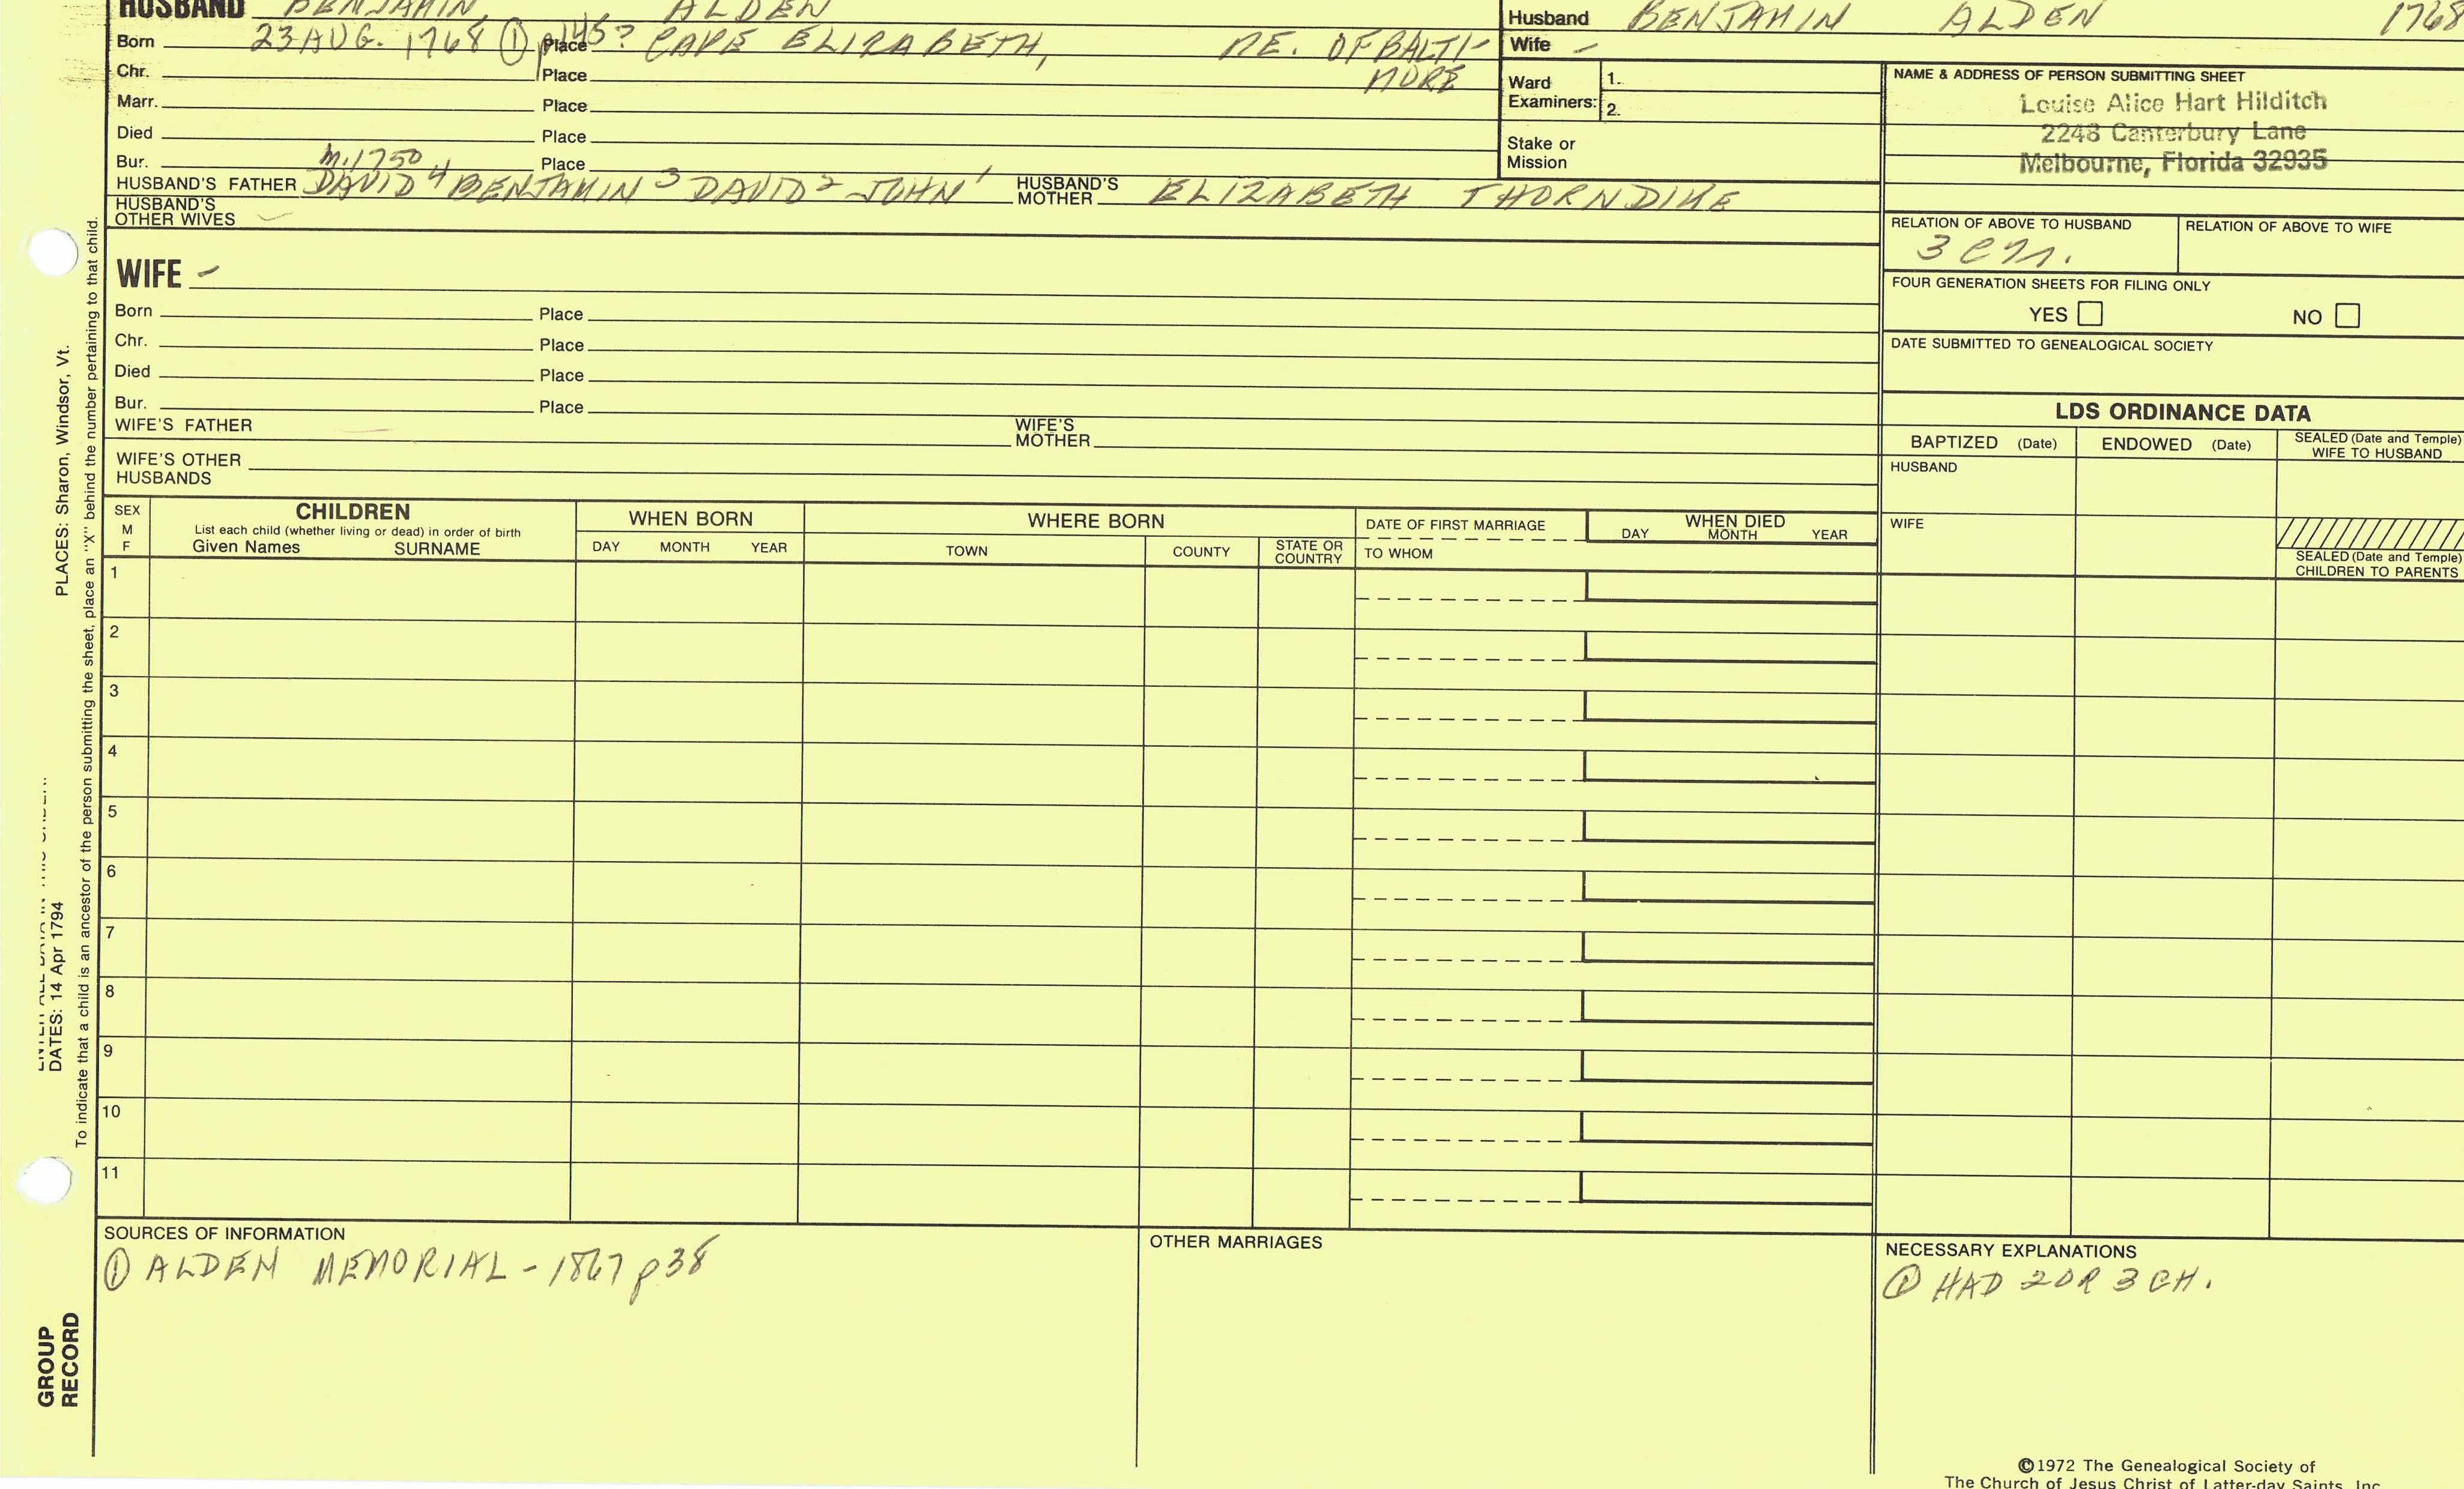 HUSBAND BENJAMIN ALDEN
Born 23 AUG. 1768 ① p145? Place CAPE ELIZABETH, ME. OF BALTI-
MORE
Chr. Place
Marr. Place
Died Place
Bur. Place
M. 1750
HUSBAND'S FATHER DAVID 4 BENJAMIN 3 DAVID 2 JOHN 1 HUSBAND'S MOTHER ELIZABETH THORNDIKE
HUSBAND'S OTHER WIVES
Husband BENJAMIN ALDEN 1768
Wife -
Ward Examiners: 1.
2.
Stake or Mission
NAME & ADDRESS OF PERSON SUBMITTING SHEET
Louise Alice Hart Hilditch
2248 Canterbury Lane
Melbourne, Florida 32935
RELATION OF ABOVE TO HUSBAND RELATION OF ABOVE TO WIFE
FOUR GENERATION SHEETS FOR FILING ONLY
YES NO
DATE SUBMITTED TO GENEALOGICAL SOCIETY
WIFE -
Born Place
Chr. Place
Died Place
Bur. Place
WIFE'S FATHER WIFE'S MOTHER
WIFE'S OTHER HUSBANDS
LDS ORDINANCE DATA
BAPTIZED (Date) ENDOWED (Date) SEALED (Date and Temple) WIFE TO HUSBAND
HUSBAND
WIFE
SEALED (Date and Temple) CHILDREN TO PARENTS
SEX M F
CHILDREN
List each child (whether living or dead) in order of birth
Given Names SURNAME
WHEN BORN
DAY MONTH YEAR
WHERE BORN
TOWN COUNTY STATE OR COUNTRY
DATE OF FIRST MARRIAGE
TO WHOM
WHEN DIED
DAY MONTH YEAR
1
2
3
4
5
6
7
8
9
10
11
SOURCES OF INFORMATION
① ALDEN MEMORIAL - 1867 p38
OTHER MARRIAGES
NECESSARY EXPLANATIONS
① HAD 2 OR 3 CH.
PLACES: Sharon, Windsor, Vt.
DATES: 14 Apr 1794
To indicate that a child is an ancestor of the person submitting the sheet, place an "X" behind the number pertaining to that child.
GROUP
RECORD
©1972 The Genealogical Society of
The Church of Jesus Christ of Latter-day Saints, Inc.